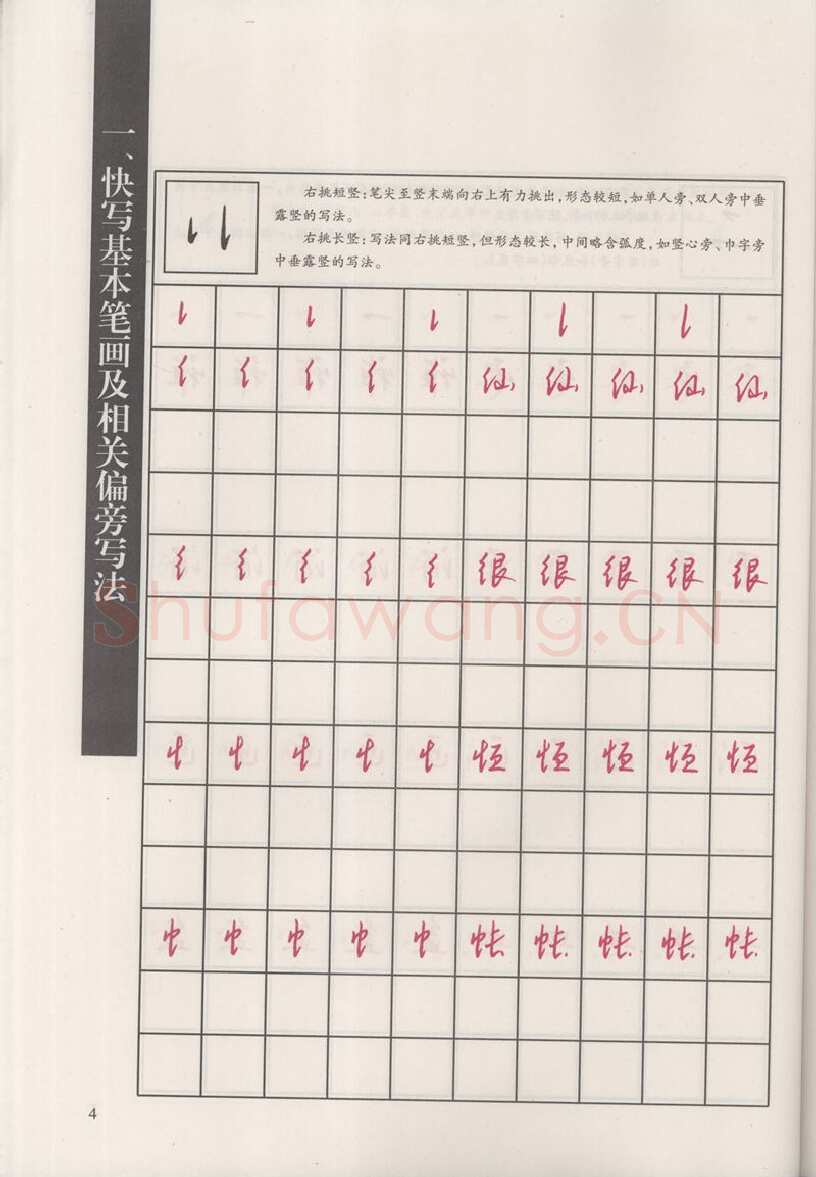 一、快写基本笔画及相关偏旁写法
右挑短竖：笔尖至竖末端向右上有力挑出，形态较短，如单人旁、双人旁中垂
露竖的写法。
右挑长竖：写法同右挑短竖，但形态较长，中间略含弧度，如竖心旁、巾字旁
中垂露竖的写法。
亻 亻 亻 亻 亻 仙 仙 仙 仙 仙
彳 彳 彳 彳 彳 很 很 很 很 很
shufawang.CN
忄 忄 忄 忄 忄 恒 恒 恒 恒 恒
巾 巾 巾 巾 巾 帐 帐 帐 帐 帐
4